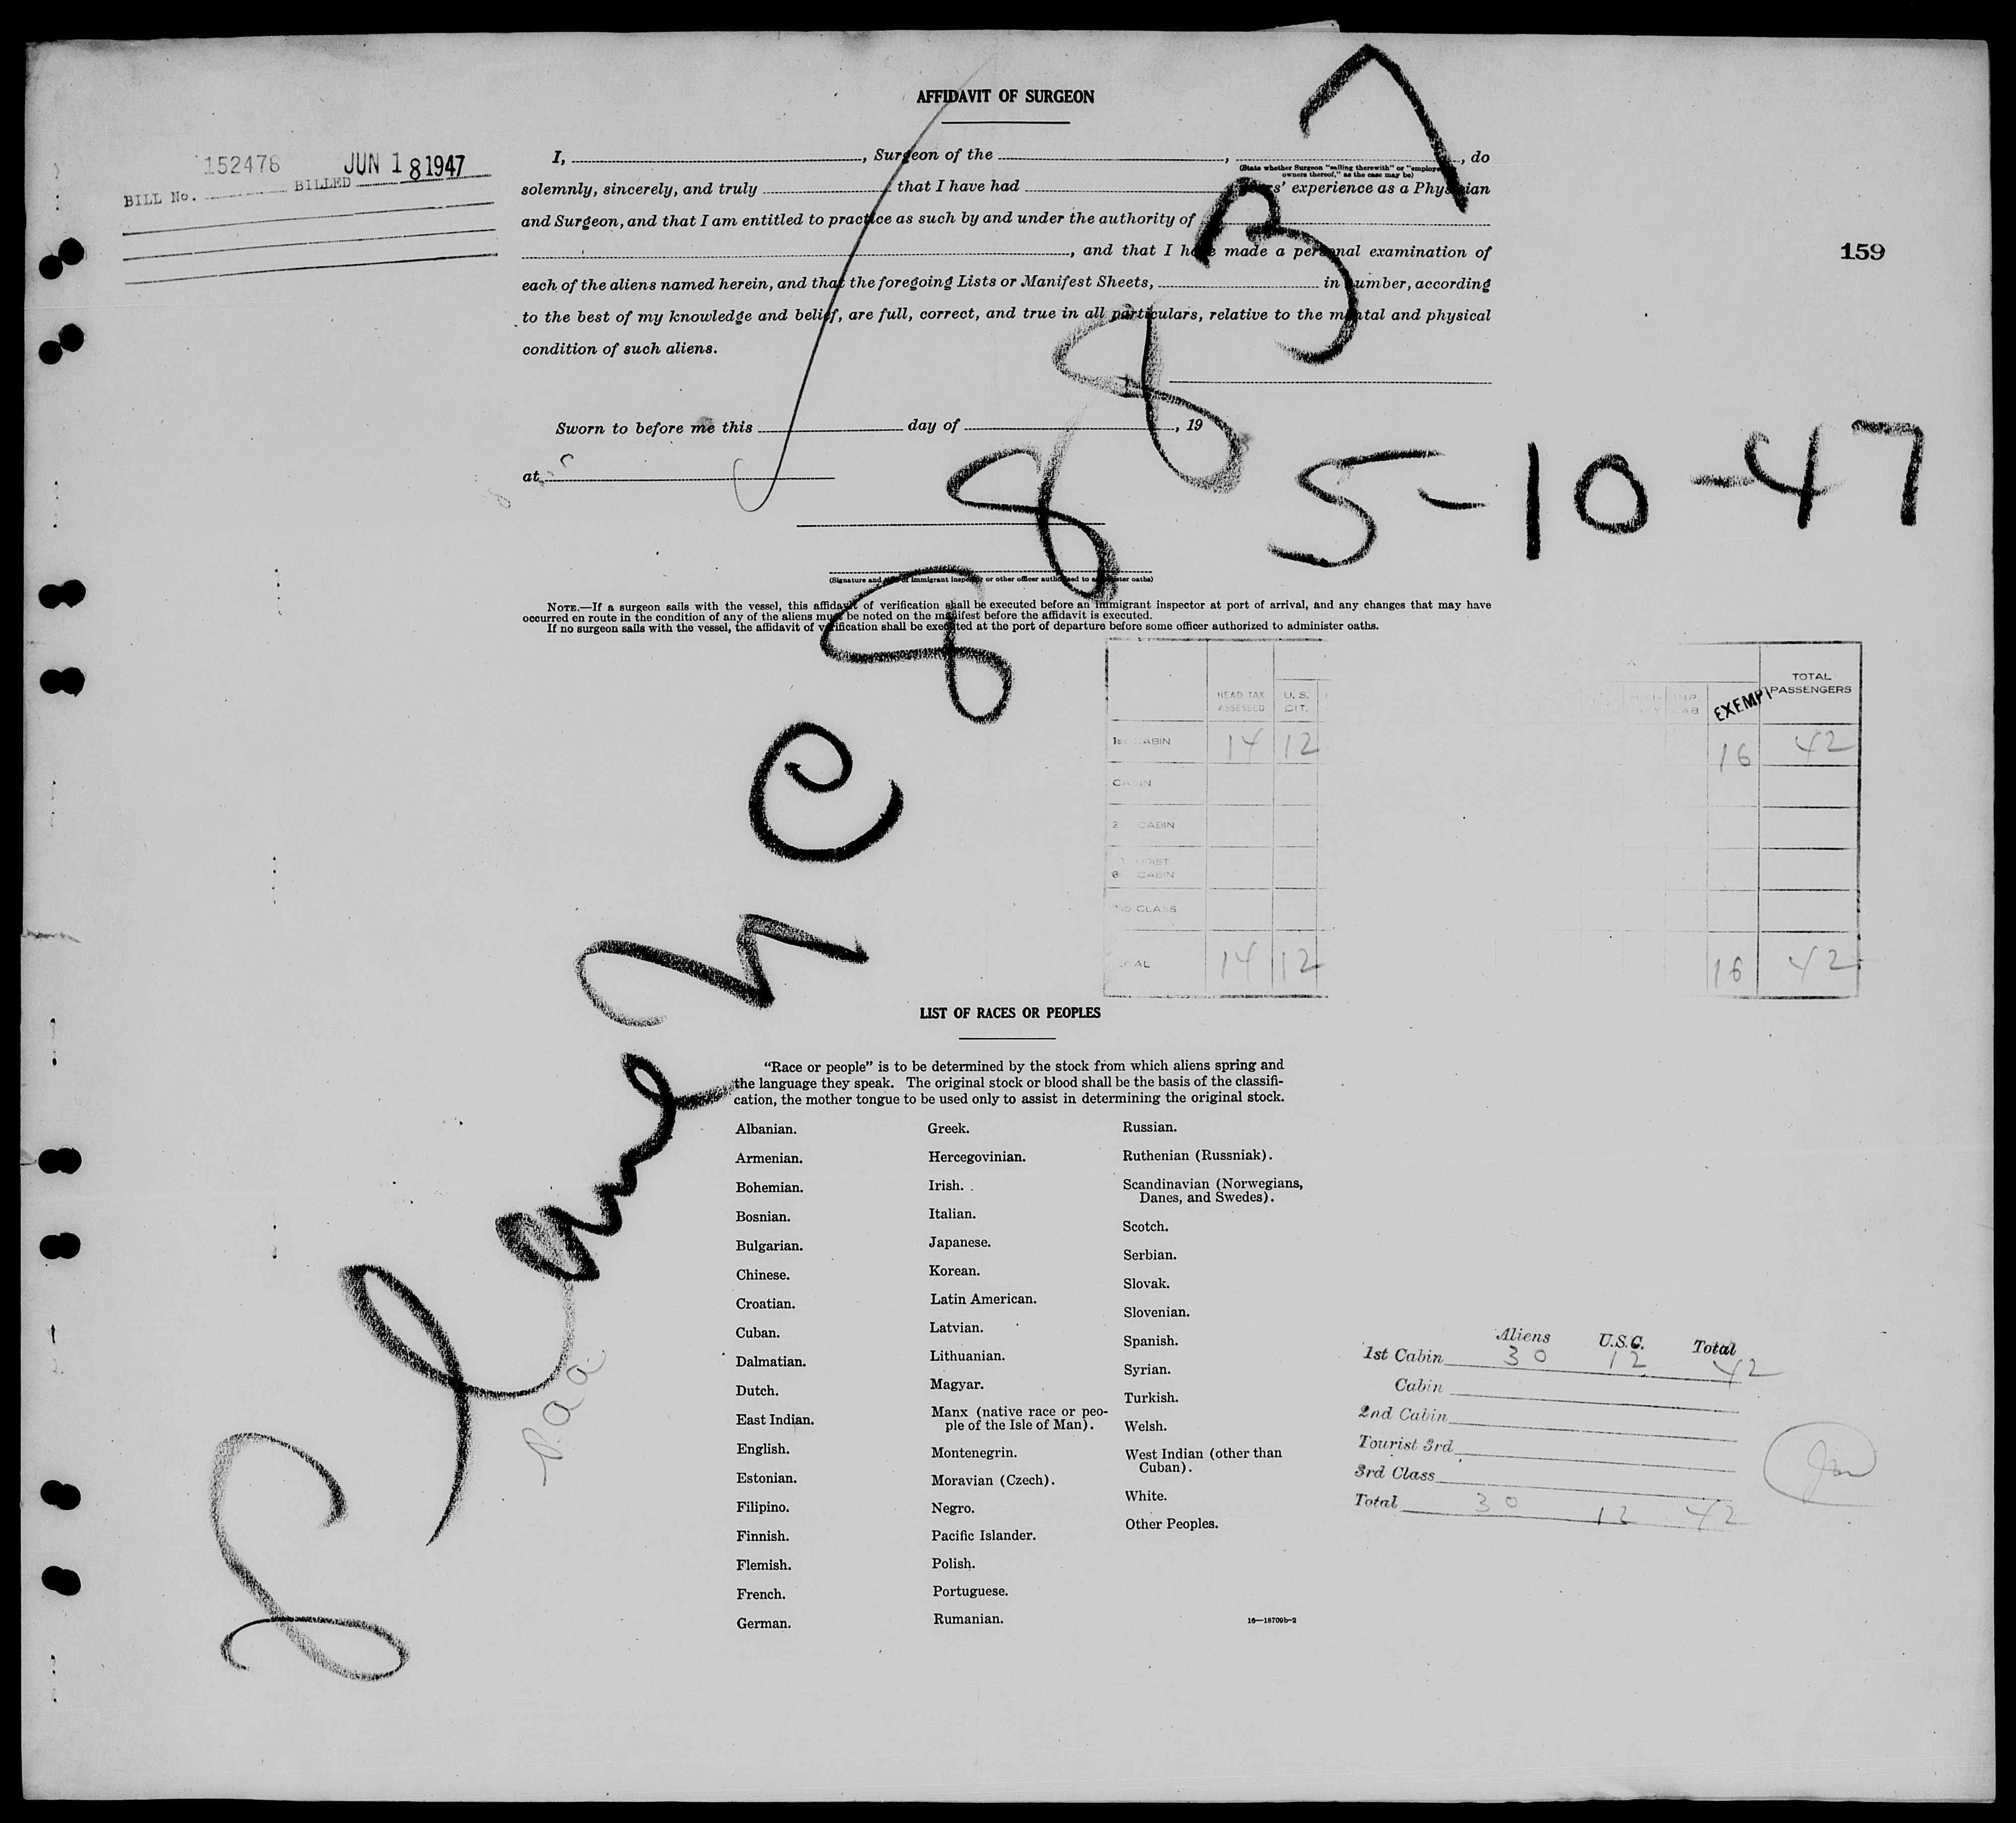 AFFIDAVIT OF SURGEON
152476 JUN 18 1947
BILL No. BILLED
I, , Surgeon of the , , do
(State whether Surgeon "sailing therewith" or "employed owners thereof," as the case may be)
solemnly, sincerely, and truly that I have had years' experience as a Physician
and Surgeon, and that I am entitled to practice as such by and under the authority of
, and that I have made a personal examination of
159
each of the aliens named herein, and that the foregoing Lists or Manifest Sheets, in number, according
to the best of my knowledge and belief, are full, correct, and true in all particulars, relative to the mental and physical
condition of such aliens.
Sworn to before me this day of , 19
at
5-10-47
Plane NC 88837
(Signature and title of immigrant inspector or other officer authorized to administer oaths)
NOTE.—If a surgeon sails with the vessel, this affidavit of verification shall be executed before an immigrant inspector at port of arrival, and any changes that may have
occurred en route in the condition of any of the aliens must be noted on the manifest before the affidavit is executed.
If no surgeon sails with the vessel, the affidavit of verification shall be executed at the port of departure before some officer authorized to administer oaths.
HEAD TAX ASSESSED U. S. CIT. EXEMPT TOTAL PASSENGERS
1st CABIN 14 12 16 42
CABIN
2 CABIN
CABIN
CLASS
TOTAL 14 12 16 42
LIST OF RACES OR PEOPLES
"Race or people" is to be determined by the stock from which aliens spring and
the language they speak. The original stock or blood shall be the basis of the classifi-
cation, the mother tongue to be used only to assist in determining the original stock.
Albanian.
Armenian.
Bohemian.
Bosnian.
Bulgarian.
Chinese.
Croatian.
Cuban.
Dalmatian.
Dutch.
East Indian.
English.
Estonian.
Filipino.
Finnish.
Flemish.
French.
German.
Greek.
Hercegovinian.
Irish.
Italian.
Japanese.
Korean.
Latin American.
Latvian.
Lithuanian.
Magyar.
Manx (native race or peo-
ple of the Isle of Man).
Montenegrin.
Moravian (Czech).
Negro.
Pacific Islander.
Polish.
Portuguese.
Rumanian.
Russian.
Ruthenian (Russniak).
Scandinavian (Norwegians,
Danes, and Swedes).
Scotch.
Serbian.
Slovak.
Slovenian.
Spanish.
Syrian.
Turkish.
Welsh.
West Indian (other than
Cuban).
White.
Other Peoples.
16—18709b-2
P.a.a.
Aliens U.S.C. Total
1st Cabin 30 12 42
Cabin
2nd Cabin
Tourist 3rd
3rd Class
Total 30 12 42